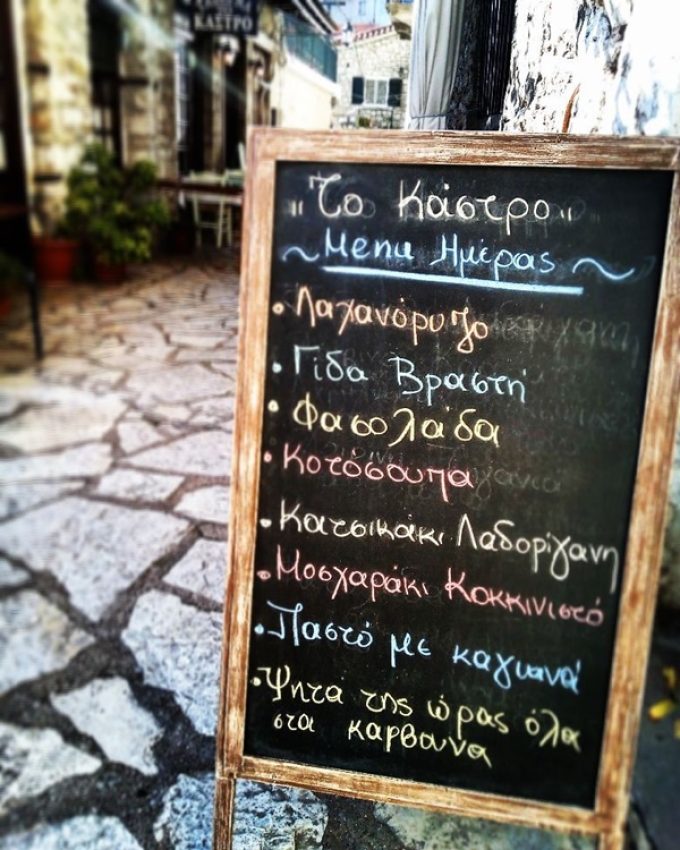 ΚΑΣΤΡΟ
"Το Κάστρο"
~Menu Ημέρας~
• Λαχανόρυζο
• Γίδα Βραστή
• Φασολάδα
• Κοτόσουπα
• Κατσικάκι Λαδορίγανη
• Μοσχαράκι Κοκκινιστό
• Παστό με καγιανά
• Ψητά της ώρας όλα
στα καρβουνα